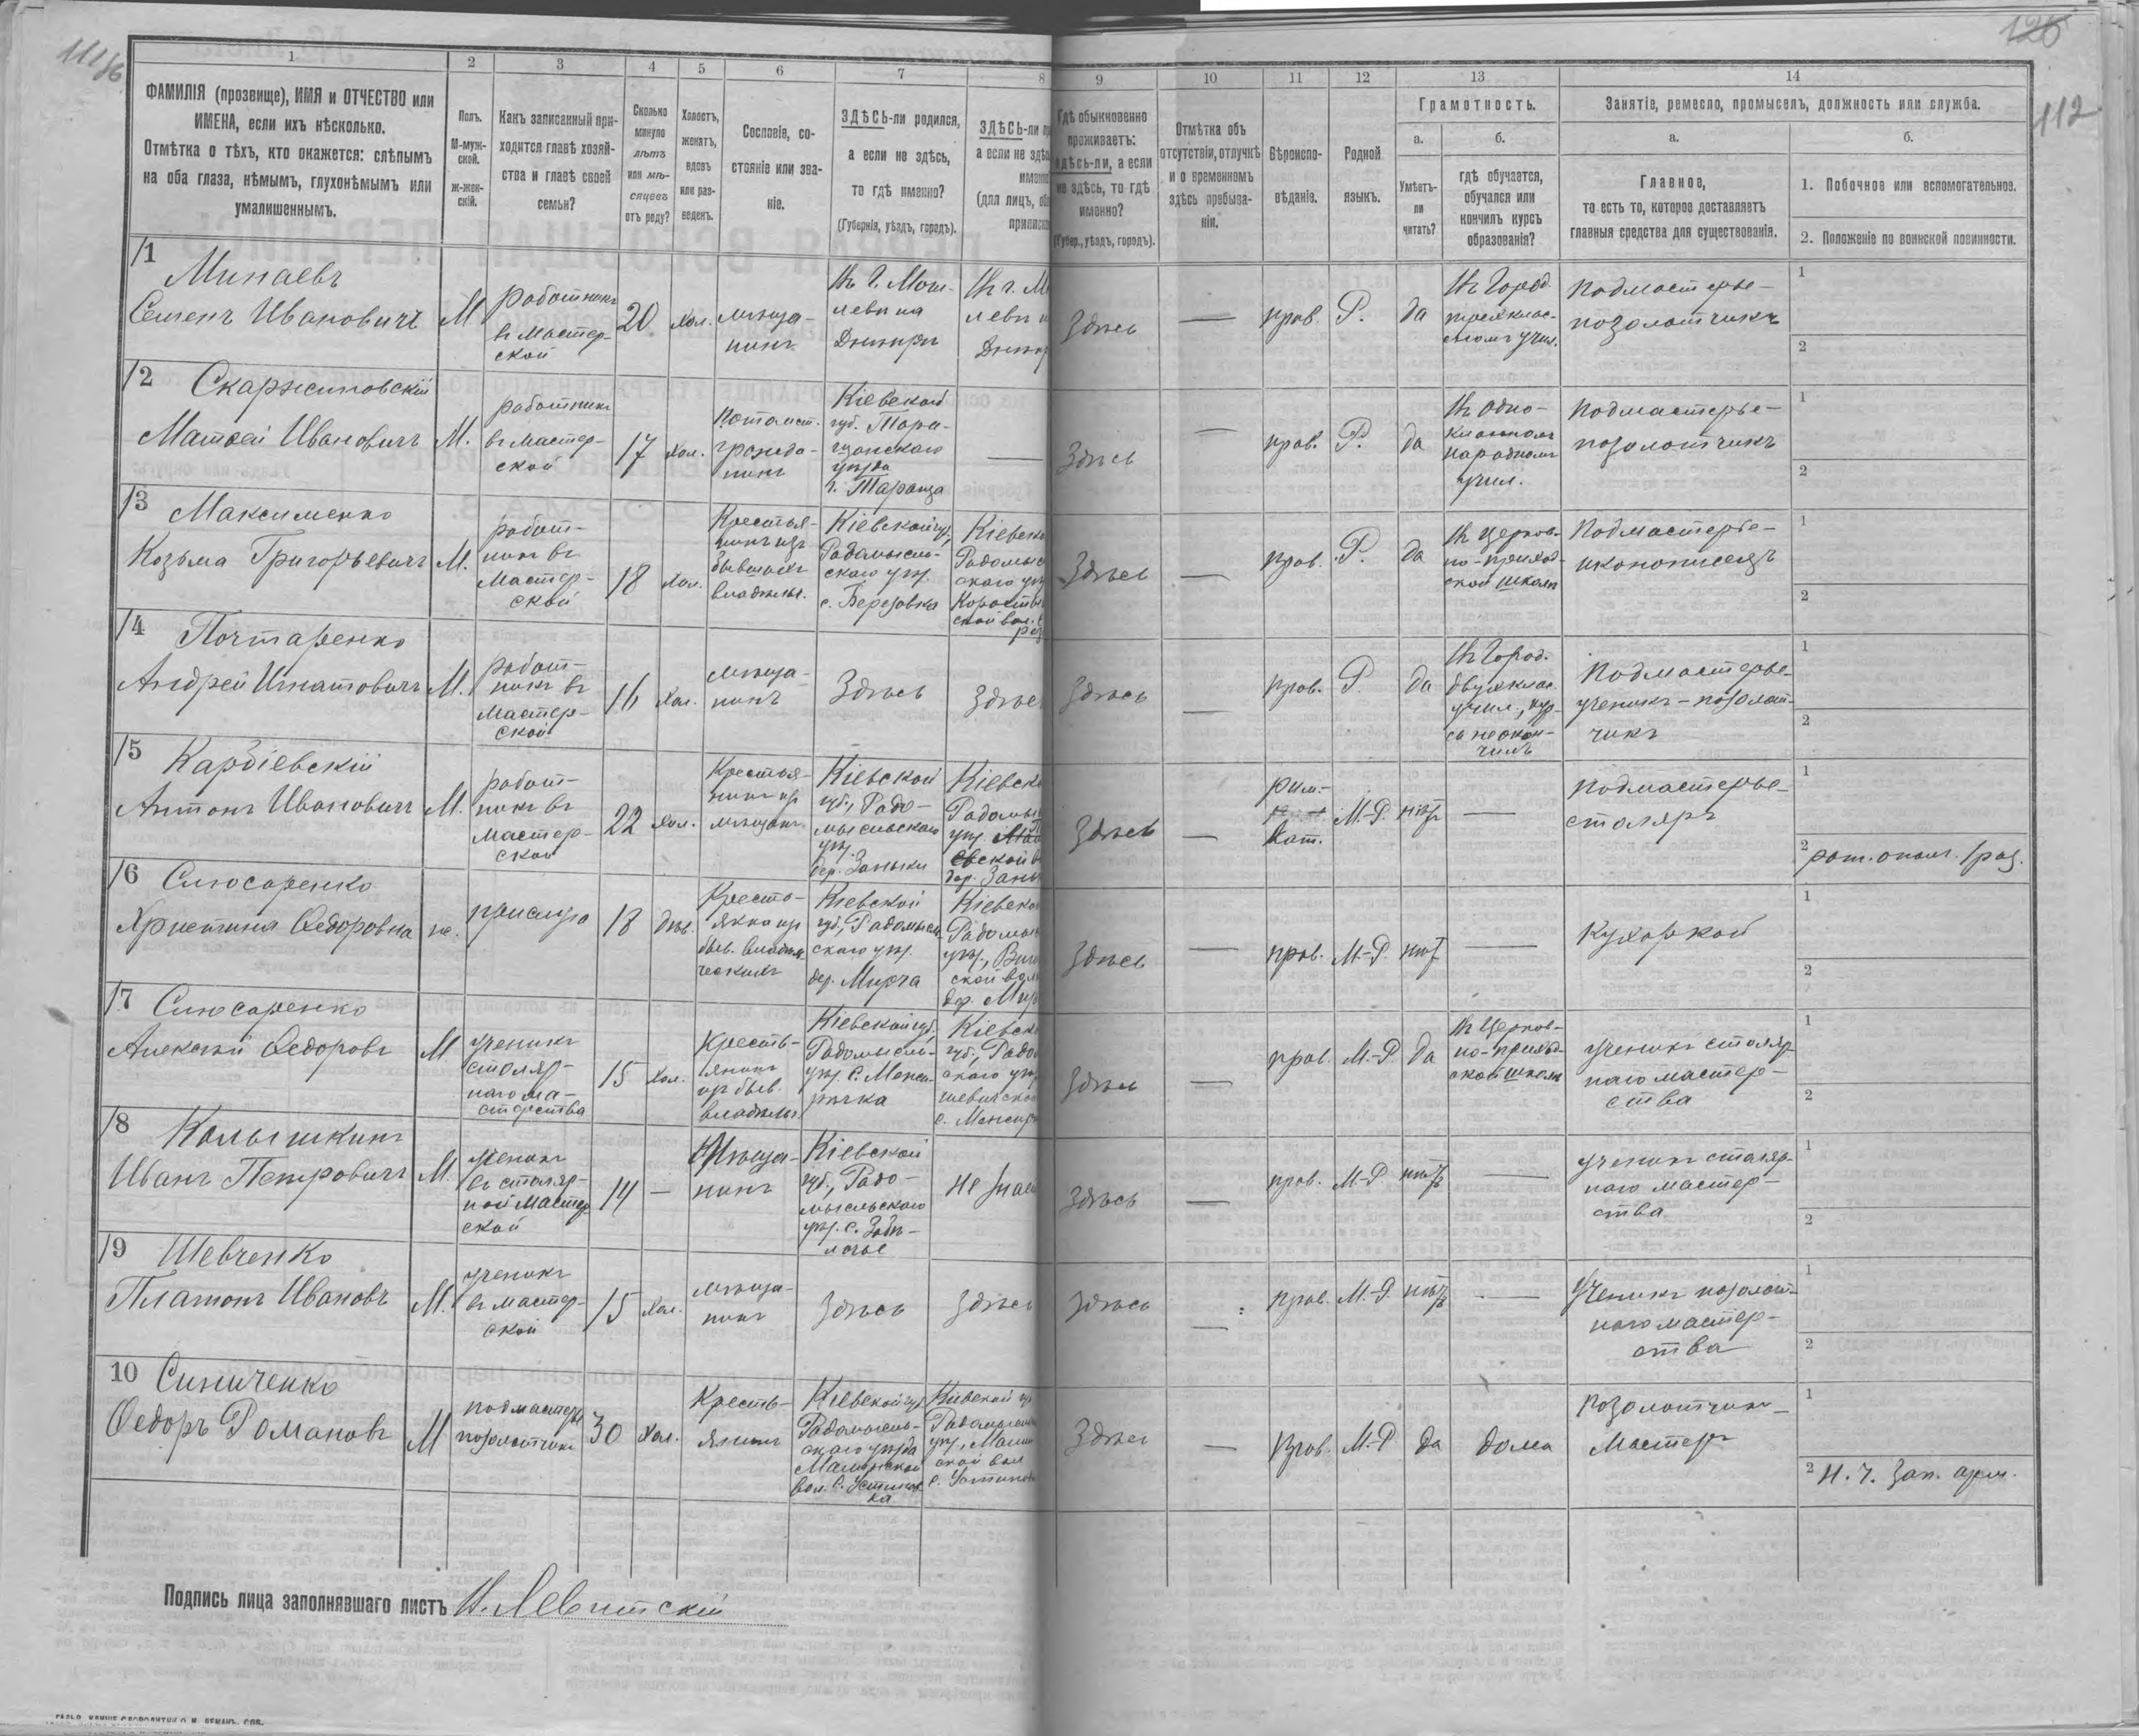 111/16
126
112
1
2
3
4
5
6
7
8
9
10
11
12
13
14
ФАМИЛІЯ (прозвище), ИМЯ и ОТЧЕСТВО или
ИМЕНА, если ихъ нѣсколько.
Отмѣтка о тѣхъ, кто окажется: слѣпымъ
на оба глаза, нѣмымъ, глухонѣмымъ или
умалишеннымъ.
Полъ.
М-муж-
ской.
ж-жен-
скій.
Какъ записанный при-
ходится главѣ хозяй-
ства и главѣ своей
семьи?
Сколько
минуло
лѣтъ
или мѣ-
сяцевъ
отъ роду?
Холостъ,
женатъ,
вдовъ
или раз-
веденъ.
Сословіе, со-
стояніе или зва-
ніе.
ЗДѢСЬ-ли родился,
а если не здѣсь,
то гдѣ именно?
(Губернія, уѣздъ, городъ).
ЗДѢСЬ-ли
а если не здѣс
именно
(для лицъ, об
приписк
Гдѣ обыкновенно
проживаетъ:
здѣсь-ли, а если
не здѣсь, то гдѣ
именно?
(Губер., уѣздъ, городъ).
Отмѣтка объ
отсутствіи, отлучкѣ
и о временномъ
здѣсь пребыва-
ніи.
Вѣроиспо-
вѣданіе.
Родной
языкъ.
Грамотность.
а.
Умѣетъ-
ли
читать?
б.
гдѣ обучается,
обучался или
кончилъ курсъ
образованія?
Занятіе, ремесло, промыселъ, должность или служба.
а.
Главное,
то есть то, которое доставляетъ
главныя средства для существованія.
б.
1. Побочное или вспомогательное.
2. Положеніе по воинской повинности.
/1
Минаевъ
Семенъ Ивановичъ
М
работникъ
въ мастер-
ской
20
хол.
мѣща-
нинъ
Въ г. Моги-
левѣ на
Днѣпрѣ
Въ г. М
левѣ н
Днѣпр
Здѣсь
—
прав.
Р.
да
Въ Город.
трехклас-
сномъ учил.
Подмастерье-
позолотчикъ
1
2
/2
Скаржиновскій
Матвей Ивановичъ
М.
работникъ
въ мастер-
ской
17
хол.
Потомст.
гражда-
нинъ
Кіевской
губ. Тара-
щанскаго
уѣзда
г. Тараща
—
Здѣсь
—
прав.
Р.
да
Въ одно-
классномъ
народномъ
учил.
Подмастерье-
позолотчикъ
1
2
/3
Максименко
Козьма Григорьевичъ
М.
работ-
никъ въ
мастер-
ской
18
хол.
Крестья-
нинъ изъ
бывшихъ
владѣльч.
Кіевской губ,
Радомысль-
скаго уѣз.
с. Березовка
Кіевско
Радомыс
скаго уѣз
Коросты
ской вол. с
Здѣсь
—
прав.
Р.
да
Въ церков-
но-приход-
ской школѣ
Подмастерье-
иконописецъ
1
2
/4
Почтаренко
Андрей Игнатовичъ
М.
работ-
никъ въ
мастер-
ской
16
хол.
мѣща-
нинъ
Здѣсь
Здѣс
Здѣсь
—
прав.
Р.
да
Въ Город.
двухклас.
учил., кур-
са не окон-
чилъ
Подмастерье-
ученикъ-позолот-
чикъ
1
2
/5
Антонъ Ивановичъ
М.
работ-
никъ въ
мастер-
ской
22
хол.
Крестья-
нинъ из
мѣщанъ
Кіевской
губ., Радо-
мысльскаго
уѣз.
дер. Заньки
Кіевск
Радомы
уѣз.
ской в
дер. Зань
Здѣсь
—
рим.-
кат.
М.-Р.
нѣтъ
—
подмастерье-
столяръ
1
2 рат. опол. 1 раз.
/6
Слюсаренко
Христина Ѳедоровна
ж.
прислуга
18
дѣв.
Кресть-
янка из
быв. владѣл
ческихъ
Кіевской
губ, Радомысль-
скаго уѣз.
дер. Мирча
Кіевско
Радомы
уѣз.,
ской вол
дер. Мир
Здѣсь
—
прав.
М.-Р.
нѣт
—
Кухаркой
1
2
/7
Слюсаренко
Алексѣй Ѳедоровъ
М
ученикъ
столяр-
наго ма-
стерства
15
хол.
Кресть-
янинъ
из быв.
владѣльч.
Кіевской губ.
Радомысль-
уѣз. с.
Кіевск
губ., Радо
скаго уѣз
Здѣсь
прав.
М.-Р.
да
Въ Церков-
но-приход-
ской школѣ
ученикъ столяр-
наго мастер-
ства
1
2
/8
Иванъ Петровичъ
М.
ученикъ
въ столяр-
ной мастер
ской
14
—
Мѣща-
нинъ
Кіевской
губ., Радо-
мысльскаго
уѣз. с. Забо-
лочье
не знае
Здѣсь
—
прав.
М.-Р
нѣтъ
—
ученикъ столяр-
наго мастер-
ства
1
2
/9
Шевченко
Платонъ Ивановъ
М.
ученикъ
въ мастер-
ской
15
хол.
мѣща-
нинъ
Здѣсь
Здѣсь
Здѣсь
—
прав.
М.-Р.
нѣтъ
—
Ученикъ позолот-
наго мастер-
ства
1
2
10
Синиченко
Ѳедоръ Романовъ
М
подмастерье
позолотчик
30
хол.
Кресть-
янинъ
Кіевской губ
Радомысль-
скаго уѣзда
Малинской
вол. с. Устинов
ка
Кіевской гу
Радомысль
уѣз., Малин
ской вол
с. Устинов
Здѣсь
—
прав.
М.-Р
да
дома
позолотчик-
Мастеръ
1
2 Н. Ч. Зап. арм.
Подпись лица заполнявшаго листъ Н. Левитскій